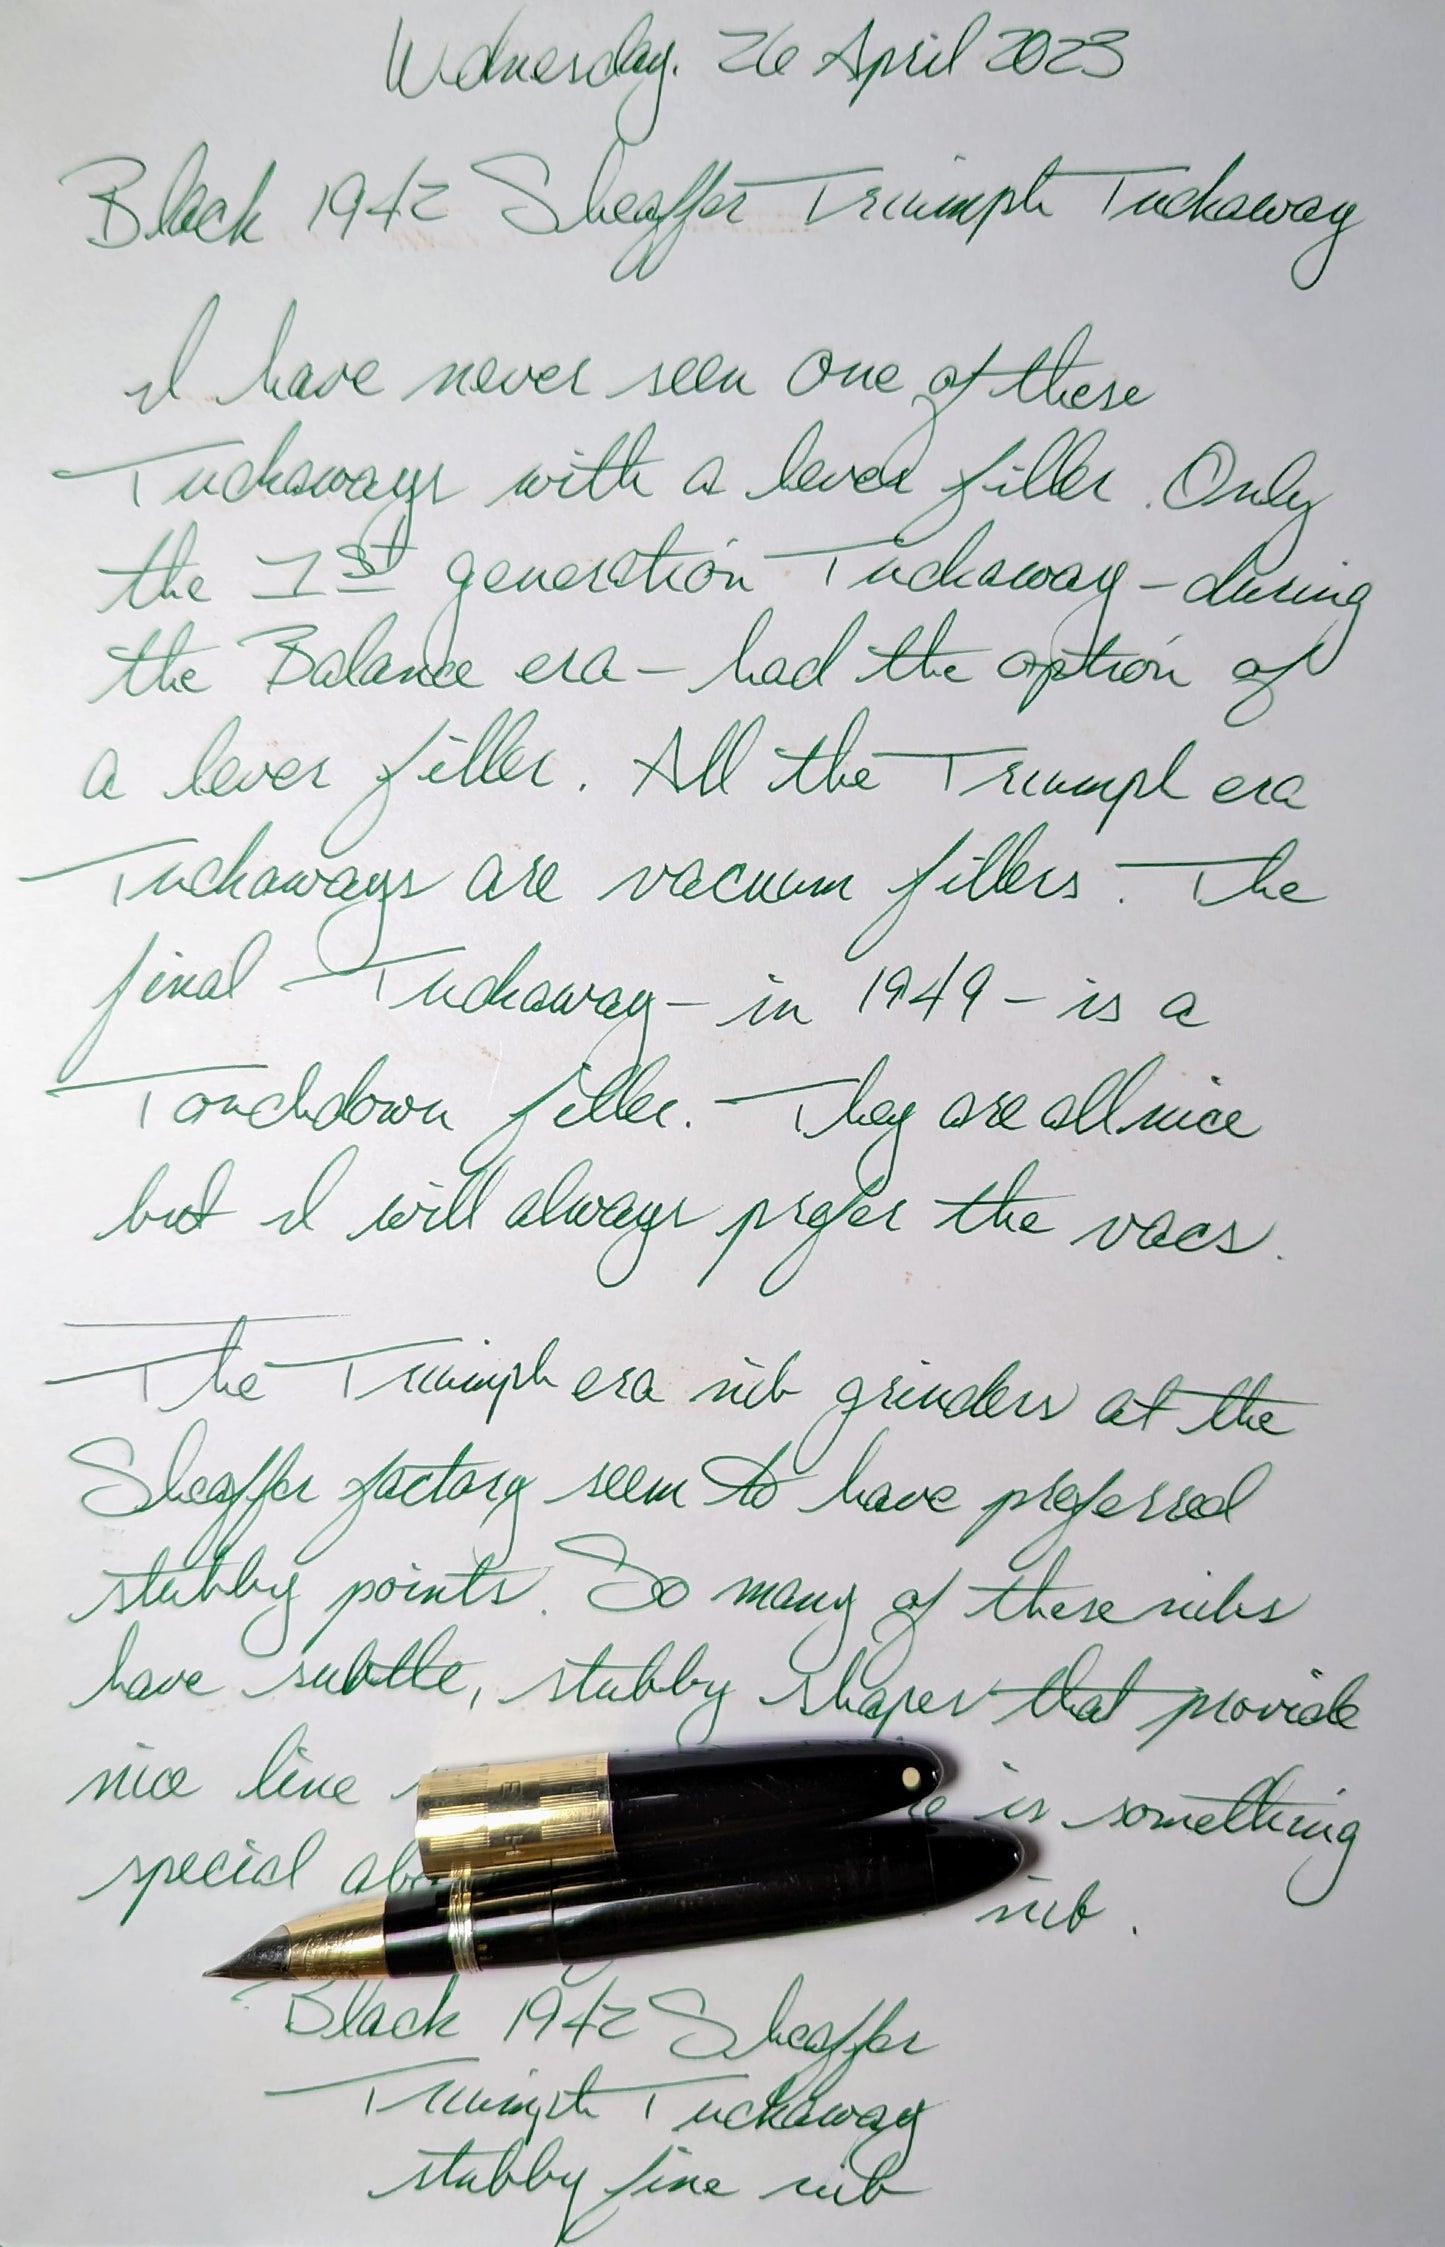 Wednesday. 26 April 2023
Black 1942 Sheaffer Triumph Tuckaway
I have never seen one of these
Tuckaways with a lever filler. Only
the 1st generation Tuckaway - during
the Balance era - had the option of
a lever filler. All the Triumph era
Tuckaways are vacuum fillers. The
final Tuckaway - in 1949 - is a
Touchdown filler. They are all nice
but I will always prefer the vacs.
The Triumph era nib grinders at the
Sheaffer factory seem to have preferred
stubby points. So many of these nibs
have subtle, stubby shapes that provide
nice line is something
special nib.
Black 1942 Sheaffer
Triumph Tuckaway
stubby fine nib